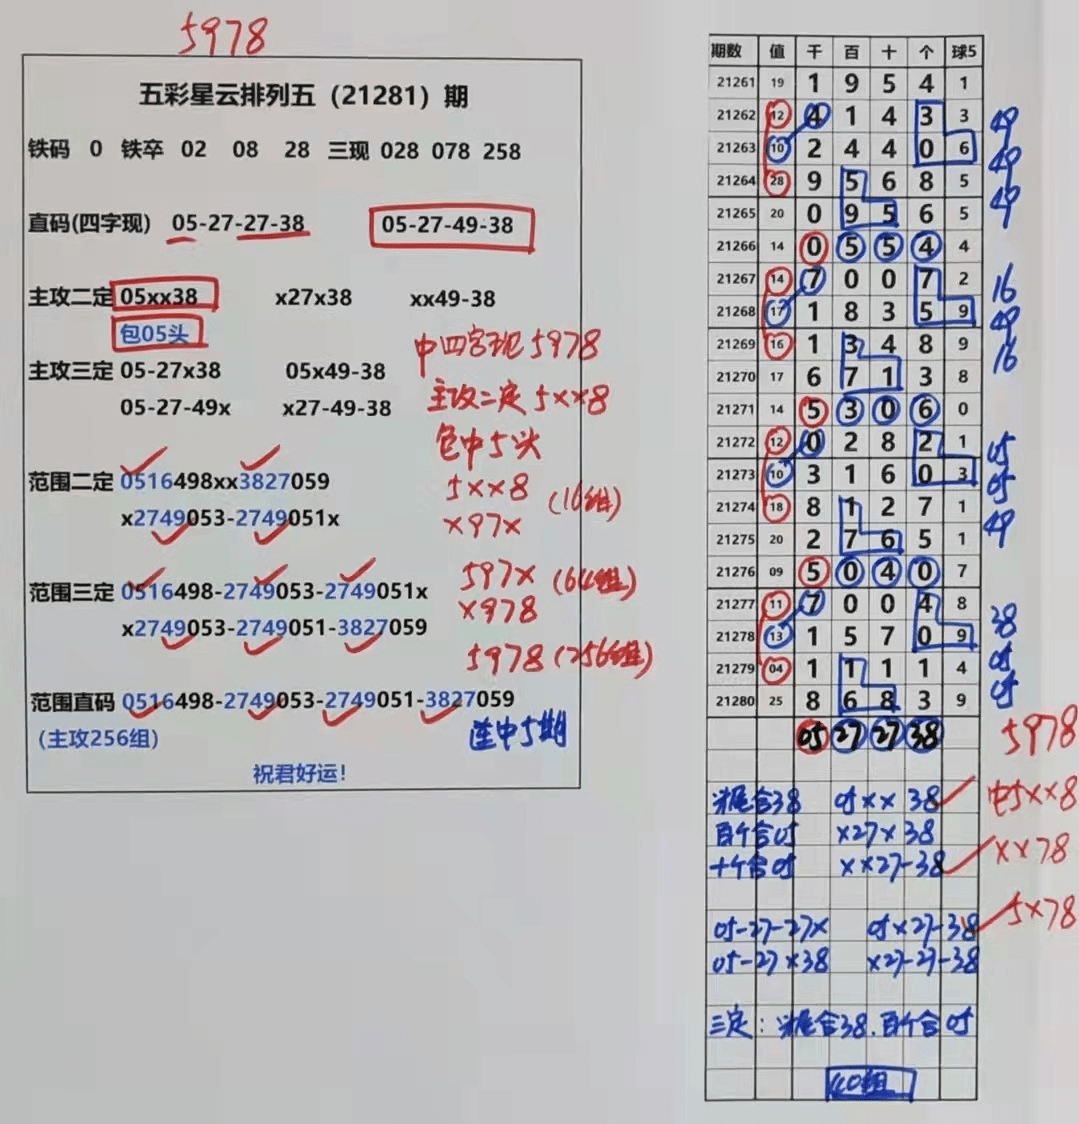 5978
五彩星云排列五（21281）期
铁码 0 铁卒 02 08 28 三现 028 078 258
直码(四字现) 05-27-27-38 05-27-49-38
主攻二定 05xx38 x27x38 xx49-38
包05头
中四字现5978
主攻三定 05-27x38 05x49-38
主攻二定5××8
05-27-49x x27-49-38
包中5头
范围二定 0516498xx3827059
5××8 (16组)
x2749053-2749051x
×97×
范围三定 0516498-2749053-2749051x
597× (64组)
x2749053-2749051-3827059
×978
5978 (256组)
范围直码 0516498-2749053-2749051-3827059
(主攻256组)
连中5期
祝君好运!
期数 值 千 百 十 个 球5
21261 19 1 9 5 4 1
21262 12 4 1 4 3 3 49
21263 10 2 4 4 0 6 49
21264 28 9 5 6 8 5 49
21265 20 0 9 5 6 5
21266 14 0 5 5 4 4
21267 14 7 0 0 7 2 16
21268 17 1 8 3 5 9 49
21269 16 1 3 4 8 9 16
21270 17 6 7 1 3 8
21271 14 5 3 0 6 0
21272 12 0 2 8 2 1 05
21273 10 3 1 6 0 3 05
21274 18 8 1 2 7 1 49
21275 20 2 7 6 5 1
21276 09 5 0 4 0 7
21277 11 7 0 0 4 8 38
21278 13 1 5 7 0 9
21279 04 1 1 1 1 4 05
21280 25 8 6 8 3 9 05
05 27 27 38 5978
头尾合38 05×× 38 中5××8
百个合05 ×27×38
十个合05 ××27-38 ××78
05-27-27× 05×27-38 5×78
05-27×38 ×27-27-38
三定：头尾合38.百个合05
40组